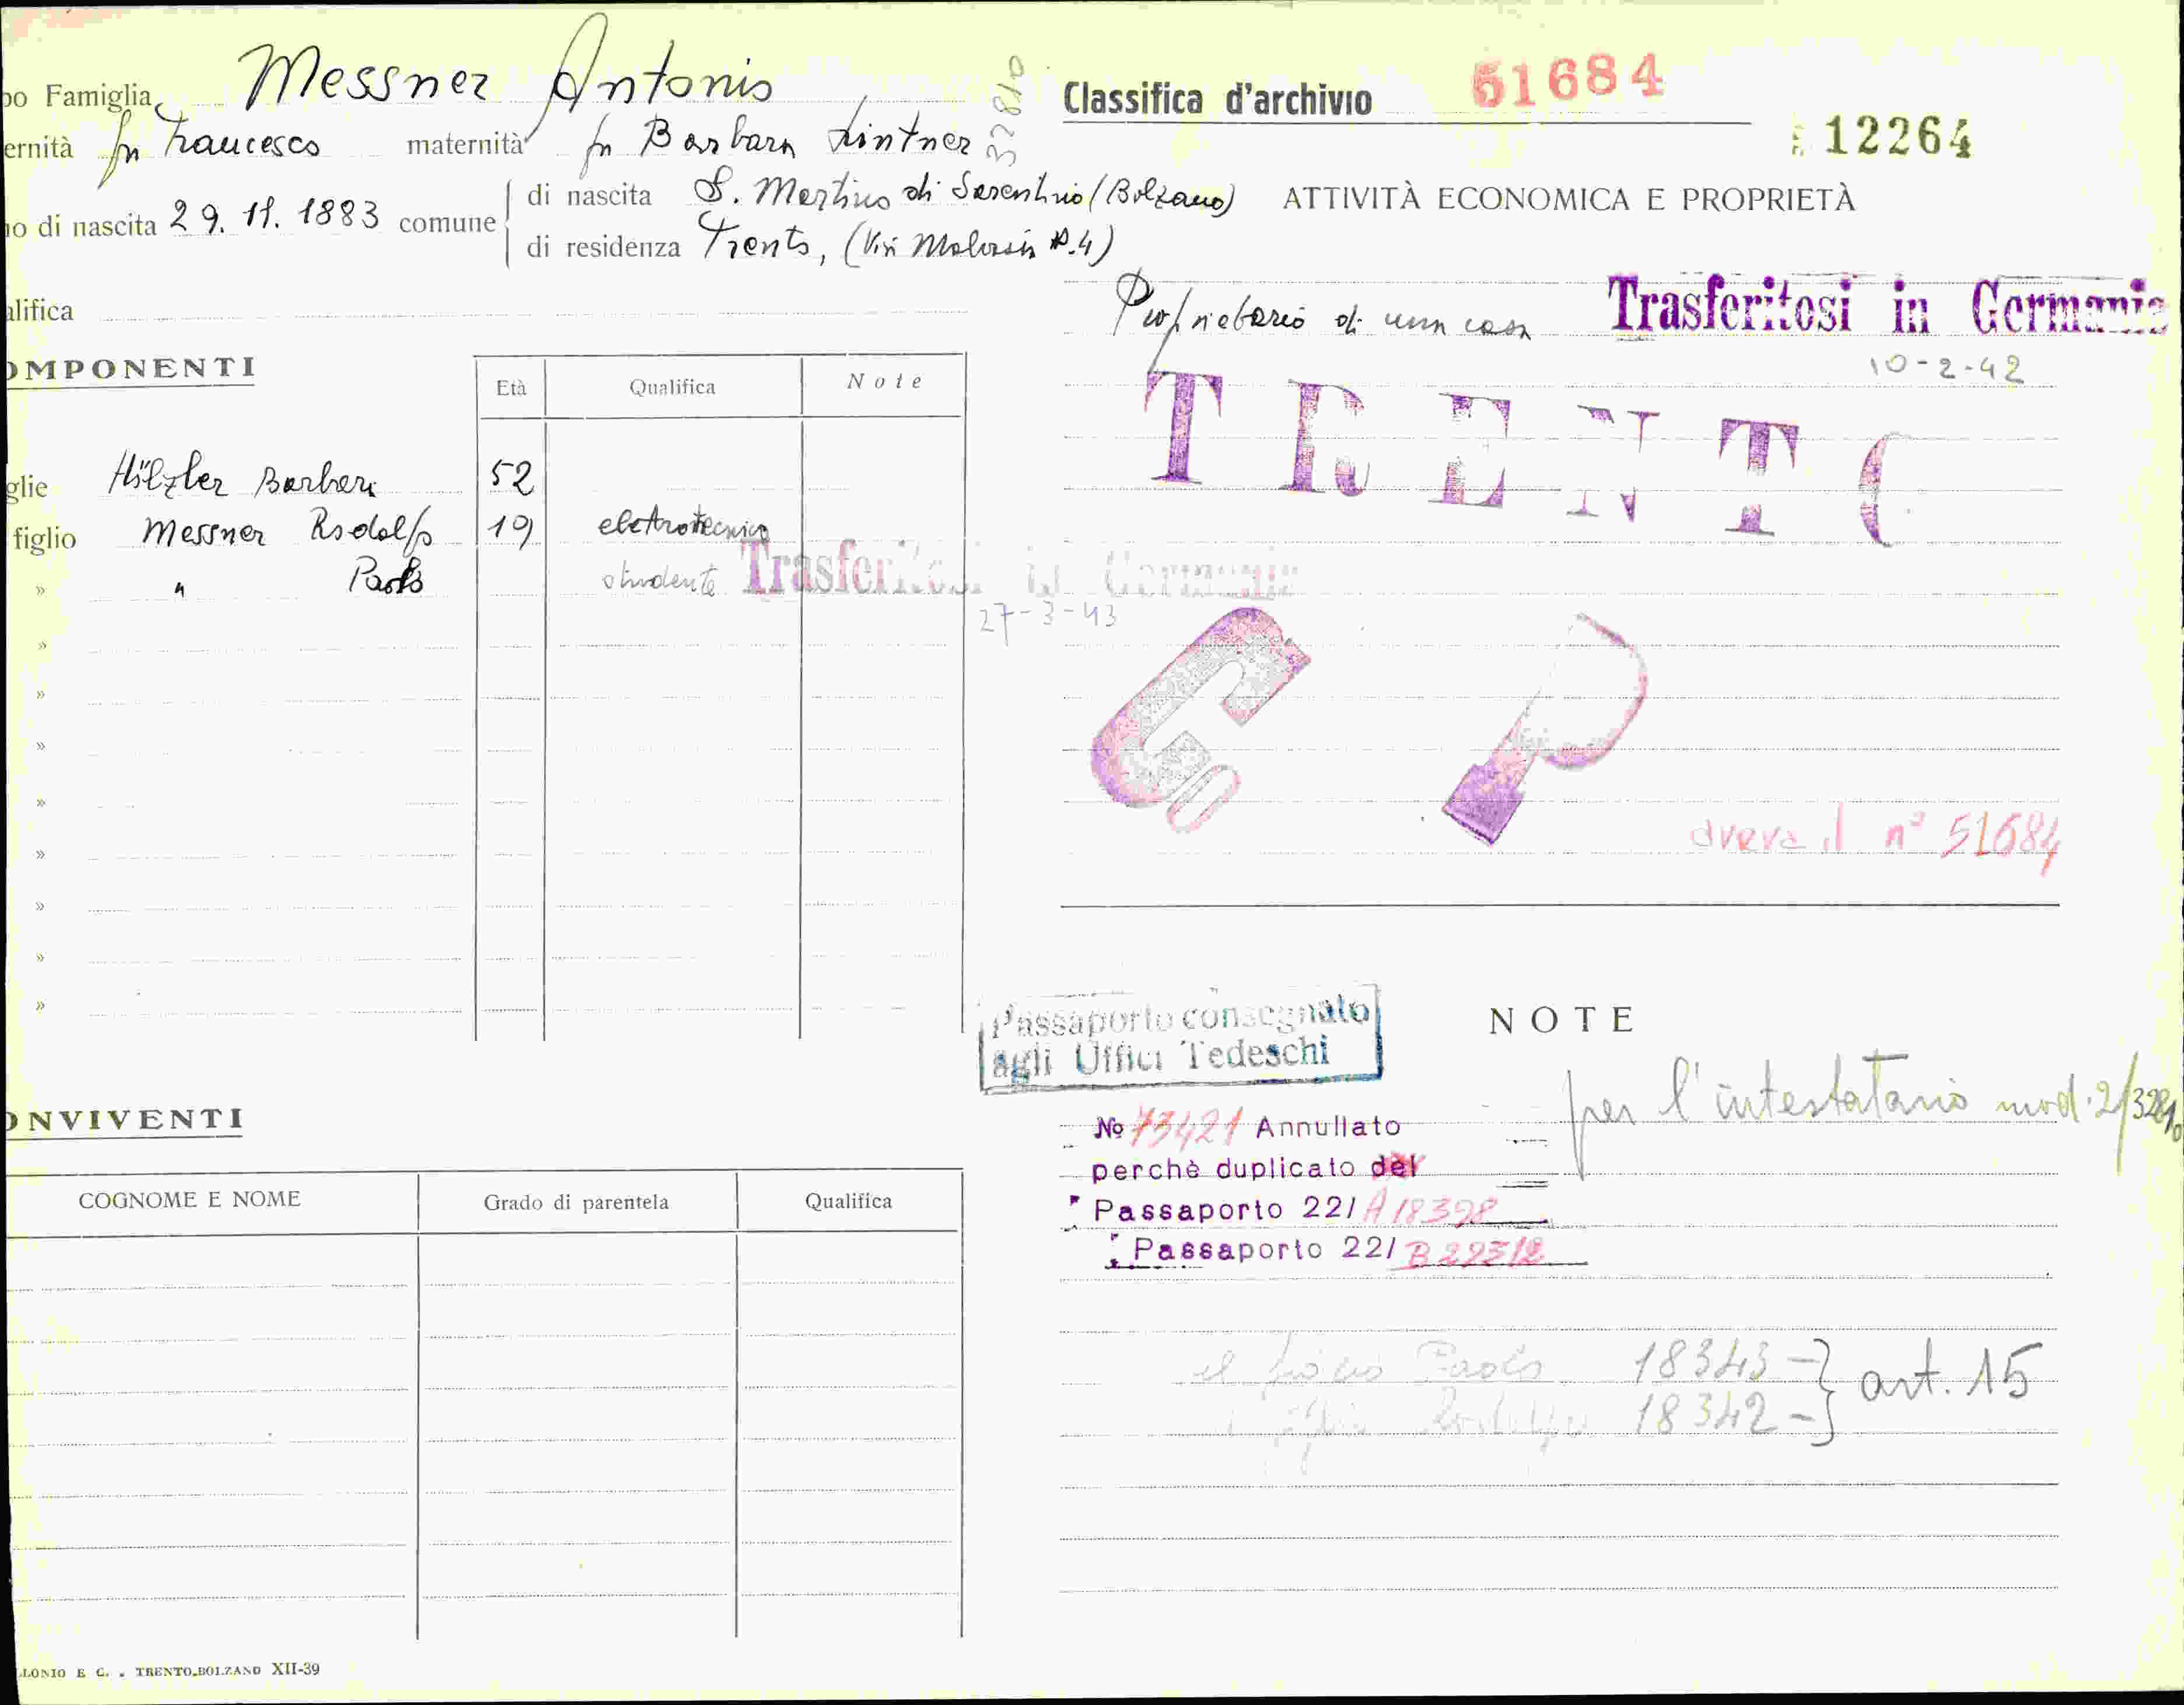 po Famiglia Messner Antonio
ernità fu Francesco maternità fu Barbara Lintner
32810
o di nascita 29.11.1883 comune
di nascita S. Martino di Sarentino (Bolzano)
di residenza Trento, (Via Malvasia N.4)
alifica
OMPONENTI
Età Qualifica Note
glie Hölzler Barbara 52
figlio Messner Rodolfo 19 elettrotecnico
» " Paolo studente Trasferitosi in Germania
27-3-43
»
»
»
»
»
»
»
»
ONVIVENTI
COGNOME E NOME Grado di parentela Qualifica
LONIO E C. - TRENTO-BOLZANO XII-39
Classifica d'archivio 51684
12264
ATTIVITÀ ECONOMICA E PROPRIETÀ
Proprietario di una casa Trasferitosi in Germania
10-2-42
TRENTO
aveva il n° 51684
Passaporto consegnato
agli Uffici Tedeschi
NOTE
per l'intestatario mod. 2/32810
No 73421 Annullato
perchè duplicato del
Passaporto 22/ A 18398
Passaporto 22/ B 29312
il figlio Paolo 18343 -} art. 15
Rodolfo 18342 -}